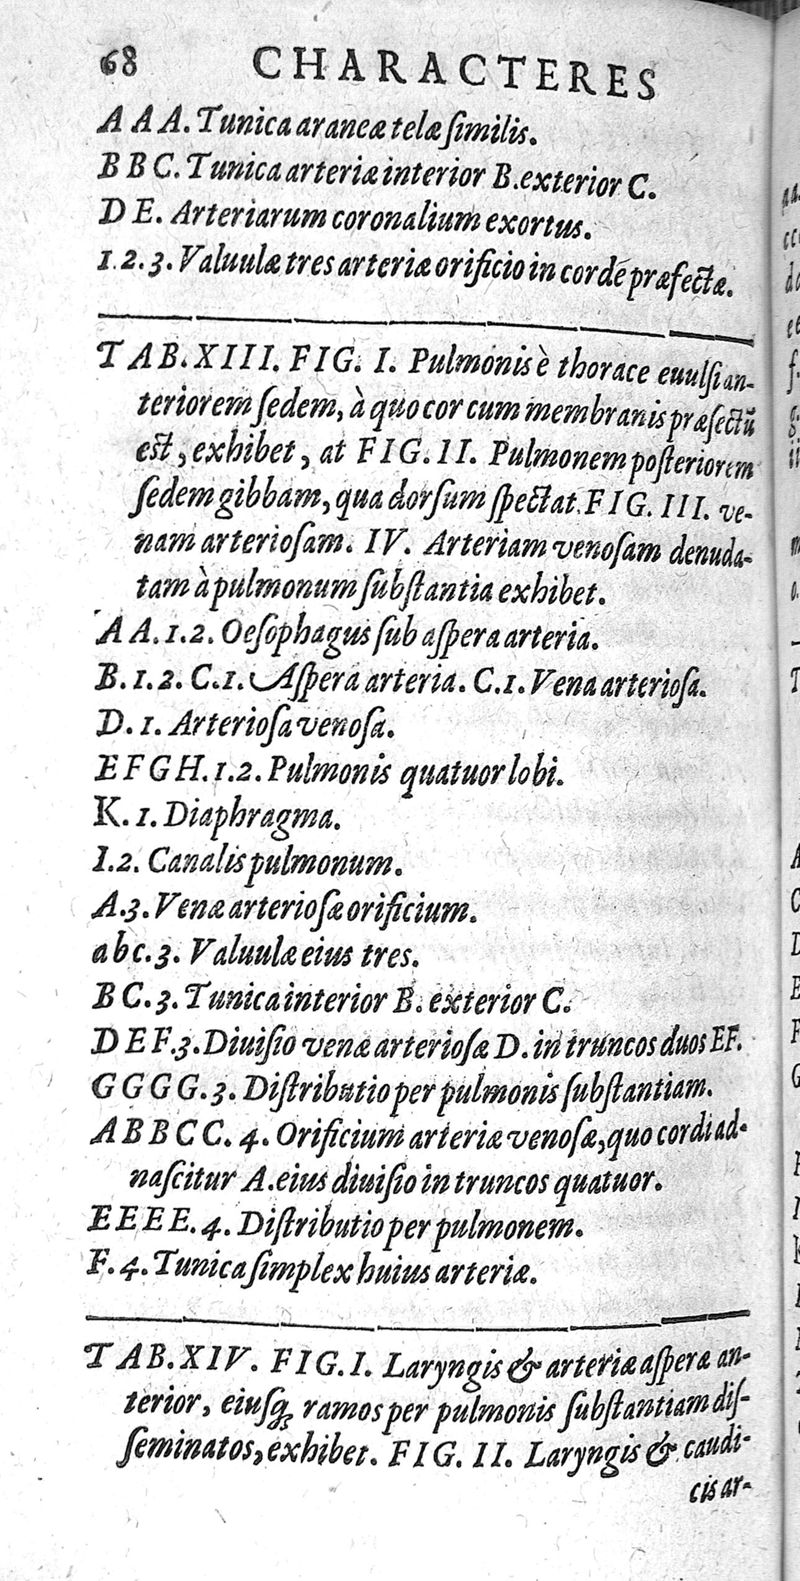 68 CHARACTERES
A A A. Tunica araneæ telæ ſimilis.
B B C. Tunica arteriæ interior B. exterior C.
D E. Arteriarum coronalium exortus.
1. 2. 3. Valuulæ tres arteriæ orificio in corde præfectæ.
TAB. XIII. FIG. I. Pulmonis è thorace euulſi an-
teriorem ſedem, à quo cor cum membranis præſectū
eſt, exhibet, at FIG. II. Pulmonem poſteriorem
ſedem gibbam, qua dorſum ſpectat. FIG. III. ve-
nam arterioſam. IV. Arteriam venoſam denuda-
tam à pulmonum ſubſtantia exhibet.
A A. 1. 2. Oeſophagus ſub aſpera arteria.
B. 1. 2. C. 1. Aſpera arteria. C. 1. Vena arterioſa.
D. 1. Arterioſa venoſa.
E F G H. 1. 2. Pulmonis quatuor lobi.
K. 1. Diaphragma.
I. 2. Canalis pulmonum.
A. 3. Venæ arterioſæ orificium.
abc. 3. Valuulæ eius tres.
B C. 3. Tunica interior B. exterior C.
D E F. 3. Diuiſio venæ arterioſæ D. in truncos duos EF.
G G G G. 3. Diſtributio per pulmonis ſubſtantiam.
A B B C C. 4. Orificium arteriæ venoſæ, quo cordi ad-
naſcitur A. eius diuiſio in truncos quatuor.
E E E E. 4. Diſtributio per pulmonem.
F. 4. Tunica ſimplex huius arteriæ.
TAB. XIV. FIG. I. Laryngis & arteriæ aſperæ an-
terior, eiuſq́ꝫ ramos per pulmonis ſubſtantiam diſ-
ſeminatos, exhibet. FIG. II. Laryngis & caudi-
cis ar-